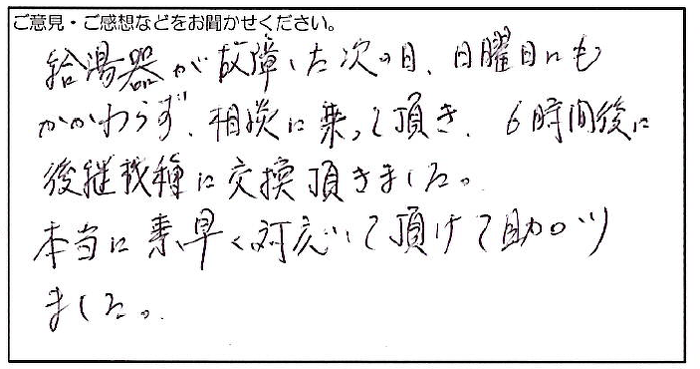 ご意見・ご感想などをお聞かせください。
給湯器が故障した次の日、日曜日にも
かかわらず、相談に乗って頂き、6時間後に
後継機種に交換頂きました。
本当に素早く対応して頂けて助かり
ました。